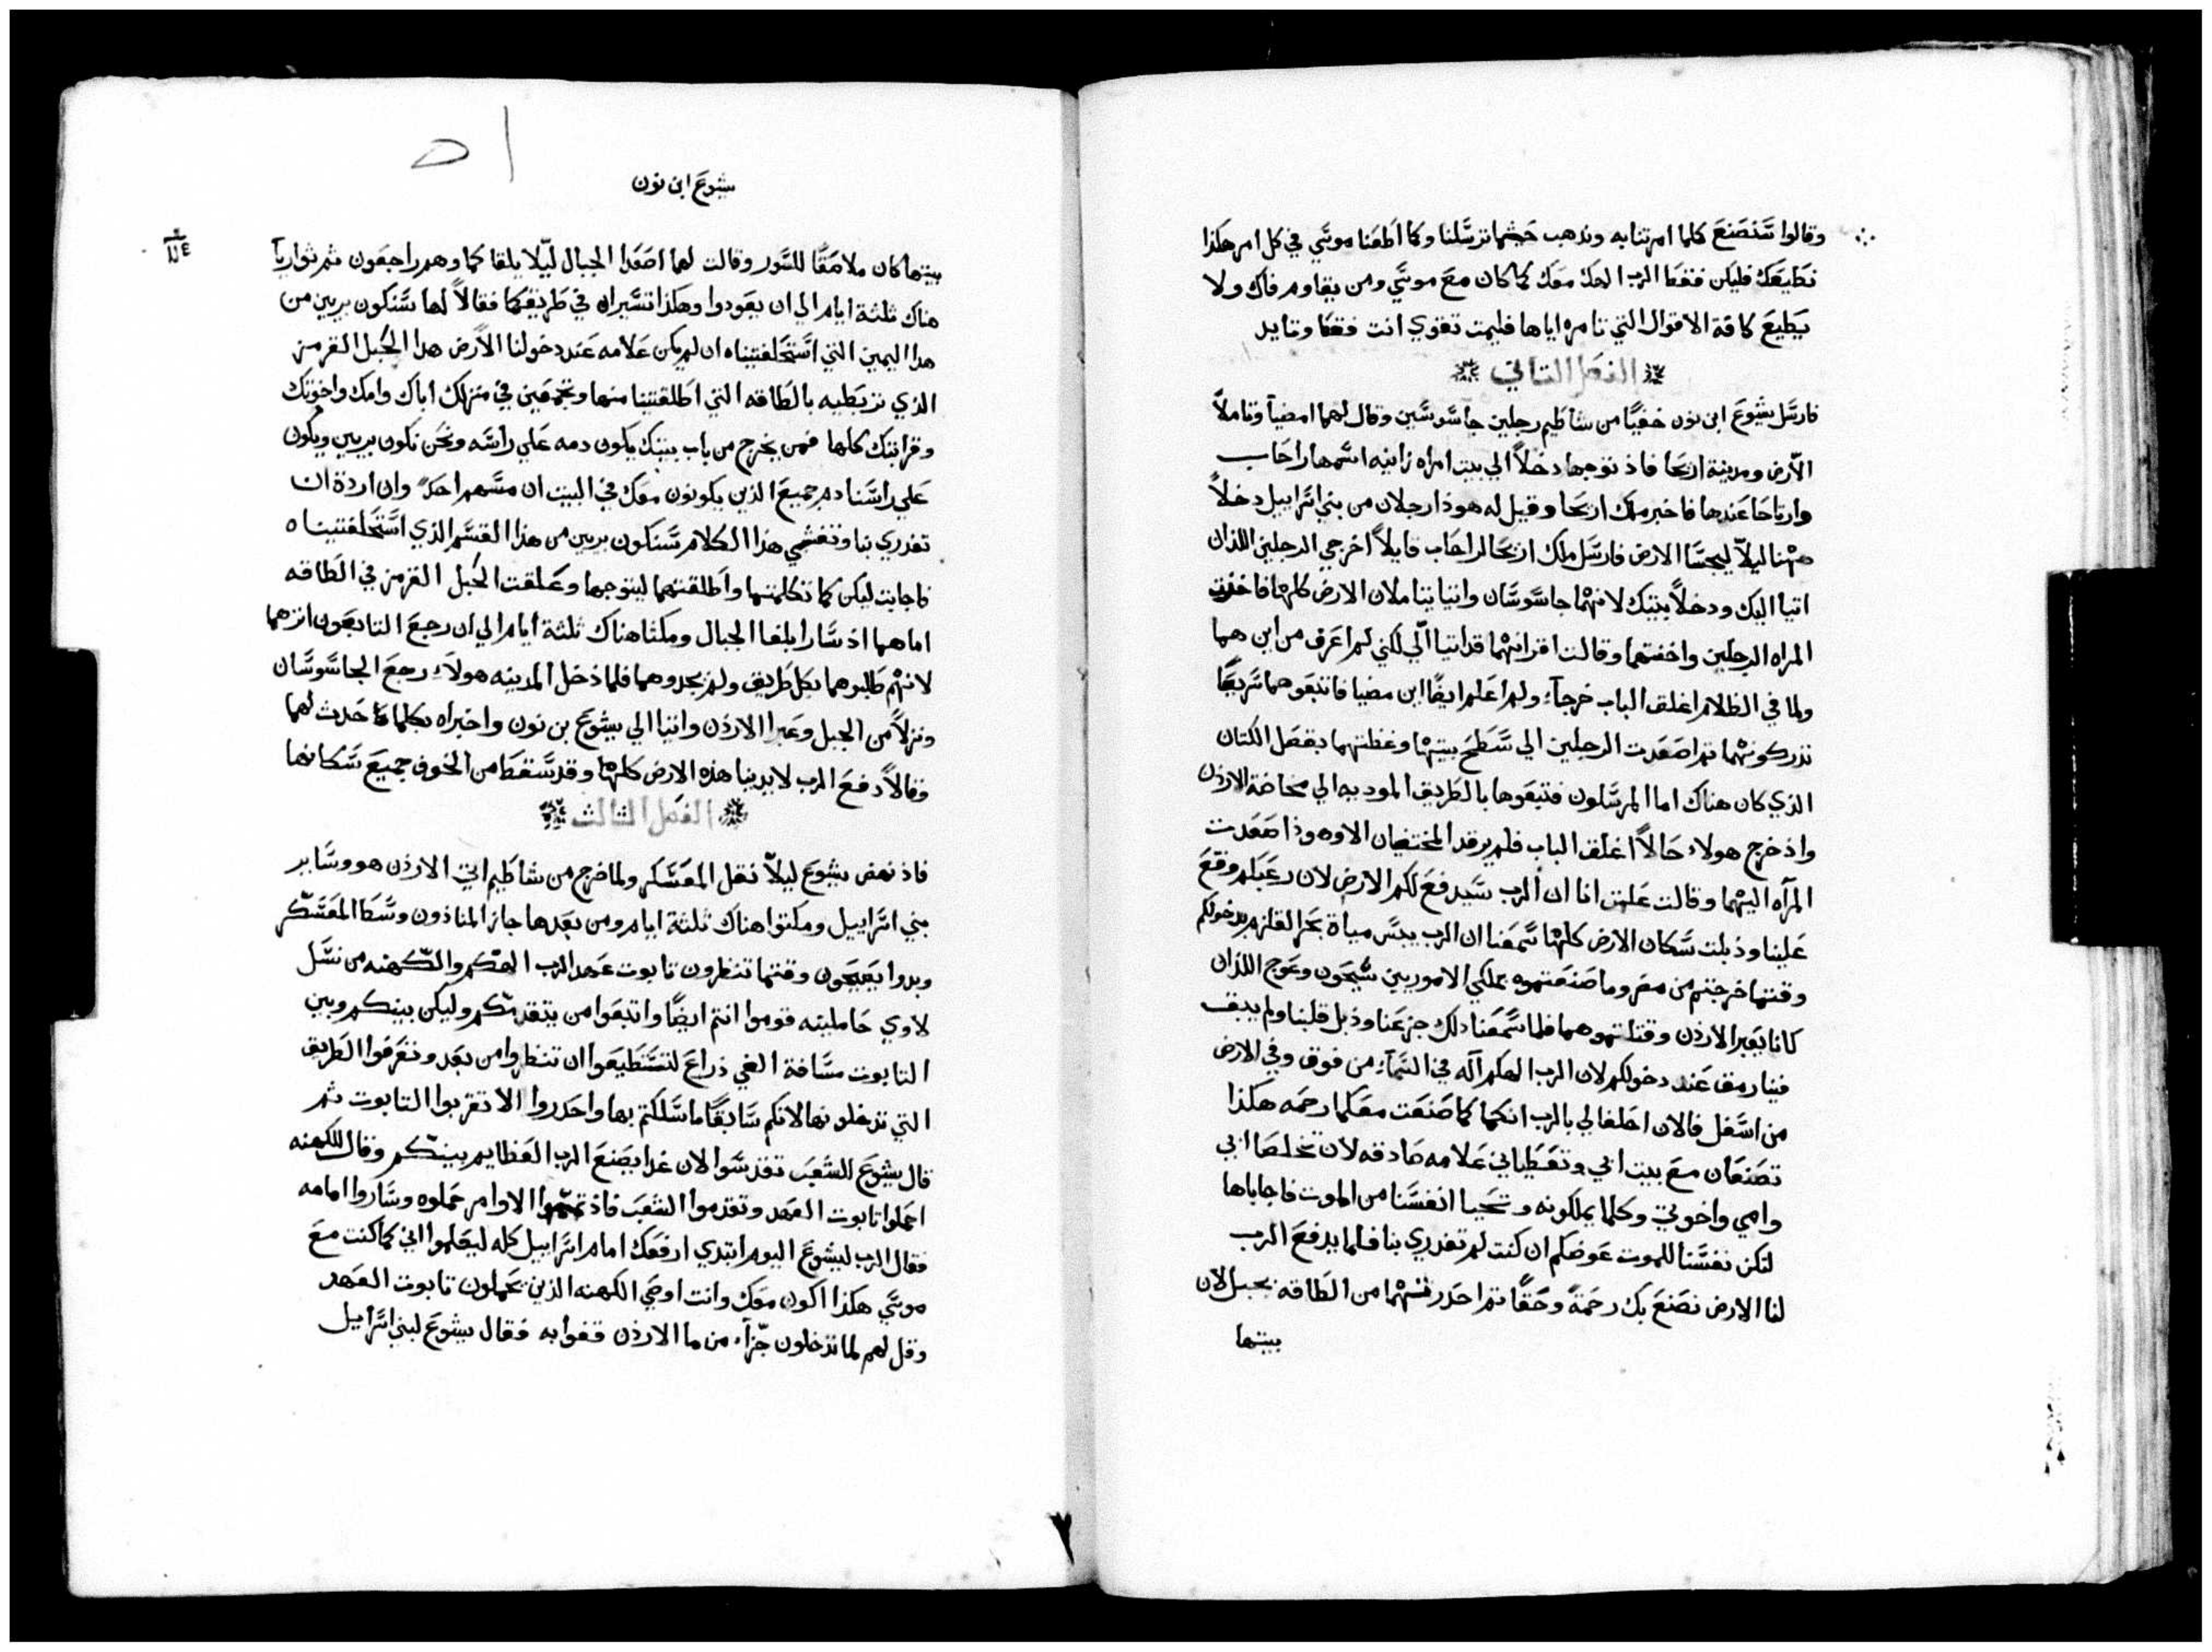 وقالوا سنصنع كلما امرتنا به ونذهب حيثما ترسلنا وكما اطعنا موسي في كل امر هكذا
نطيعك فليكن فقط الرب الهك معك كما كان مع موسي ومن يقاوم فاك ولا
يطيع كافة الاقوال التي تامره اياها فليمت تقوي انت فقط وتايد
الفصل الثاني
فارسل يشوع ابن نون خفيًا من شاطيم رجلين جاسوسين وقال لهما امضيا وتاملا
الارض ومدينة اريحا فاذ توجها دخلاً الي بيت امراه زانيه اسمها راحاب
وارتاحا عندها فاخبر ملك اريحا وقيل له هوذا رجلان من بني اسراييل دخلاً
ههنا ليلاً ليجسا الارض فارسل ملك اريحا لراحاب قايلاً اخرجي الرجلين اللذان
اتيا اليك ودخلاً بيتك لانهما جاسوسان واتيا يتاملان الارض كلها فاخذت
المراه الرجلين واخفتهما وقالت اقر انهما قد اتيا الّي لكني لم اعرف من اين هما
ولما في الظلام اغلق الباب خرجآ ولم اعلم ايضًا اين مضيا فاتبعوهما سريعًا
تدركونهما ثم اصعدت الرجلين الي سطح بيتها وغطتهما بقصل الكتان
الذي كان هناك اما المرسلون فتبعوها بالطريق الموديه الي مخاضة الاردن
واذ خرج هولاء حالاً اغلق الباب فلم يرقد المختفيان الا وهوذا صعدت
المرآه اليهما وقالت علمت انا ان الرب سيدفع لكم الارض لان رعبكم وقع
علينا وذبلت سكان الارض كلها سمعنا ان الرب يبس مياة بحر القلزم بدخولكم
وقتما خرجتم من مصر وما صنعتموه بملكي الاموريين سيحون وعوج اللذان
كانا بعبر الاردن وقتلتموهما فلما سمعنا ذلك جزعنا وذبل قلبنا ولم يبق
فينا رمق عند دخولكم لان الرب الهكم آله في السمآء من فوق وفي الارض
من اسفل فالان احلفا لي بالرب انكما كما صنعت معكما رحمه هكذا
تصنعان مع بيت ابي وتعطياني علامه صادقه لان تخلصا ابي
وامي واخوتي وكلما يملكونه وتحيا انفسنا من الموت فاجاباها
لتكن نفسنا للموت عوضكم ان كنت لم تغدري بنا فلما يدفع الرب
لنا الارض نصنع بك رحمةً وحقًا ثم احدرتهما من الطاقه بحبل لان
بيتها
يشوع ابن نون
بيتها كان ملاصقًا للسور وقالت لهما اصعدا الجبال ليّلا يلقاكما وهم راجعون ثم تواريا
هناك ثلثة ايام الي ان يعودوا وهكذا تسيراه في طريقكما فقالاً لها سنكون بريين من
هدا اليمين التي استحلفتيناه ان لم يكن علامه عند دخولنا الأرض هدا الحبل القرمز
الذي تربطيه بالطاقه التي اطلقتينا منها وتجمعين في منزلك اباك وامك واخوتك
وقرابتك كلها فمن يخرج من باب بيتك يكون دمه علي راسه ونحن نكون بريين ويكون
علي راسنا دم جميع الذين يكونون معك في البيت ان مسهم احدً وان اردة ان
تغدري بنا وتفشي هذا الكلام سنكون بريين من هذا القسم الذي استحلفتيناه
فاجابت ليكن كما تكلمتما واطلقتهما ليتوجها وعلقت الحبل القرمز في الطاقه
اما هما اذ سارا بلغا الجبال ومكثا هناك ثلثة ايام الي ان رجع التابعون اثرهما
لانهم طلبوهما بكل طريق ولم يجدوهما فلما دخل المدينه هولاء رجع الجاسوسان
ونزلاً من الجبل وعبرا الاردن واتيا الي يشوع بن نون واخبراه بكلما حدث لهما
وقالاً دفع الرب لايدينا هذه الارض كلها وقد سقط من الخوف جميع سكانها
الفصل الثالث
فاذ نهض يشوع ليلاً نقل المعسكر ولما خرج من شاطيم اتي الاردن هو وساير
بني اسراييل ومكثوا هناك ثلثة ايام ومن بعدها جاز المناذون وسط المعسكر
وبدوا يعيعون وقتما تنظرون تابوت عهد الرب الهكم والكهنه من نسل
لاوي حامليه قوموا انتم ايضًا واتبعوا من يتقدمكم وليكن بينكم وبين
التابوت مسافة الفي ذراع لتستطيعوا ان تنظروا من بعد وتعرفوا الطريق
التي تدخلونها لانكم سابقًا ما سلكتم بها واحدروا الا تقربوا التابوت ثم
قال يشوع للشعب تقدسوا لان غدا يصنع الرب العظايم بينكم وقال للكهنه
احملوا تابوت العهد وتقدموا الشعب فاذ تمموا الاوامر حملوه وساروا امامه
فقال الرب ليشوع اليوم ابتدي ارفعك امام اسراييل كله ليعلموا اني كما كنت مع
موسي هكذا اكون معك وانت اوصي الكهنه الذين يحملون تابوت العهد
وقل لهم لما تدخلون جزآء من ما الاردن قفوا به فقال يشوع لبني اسراييل